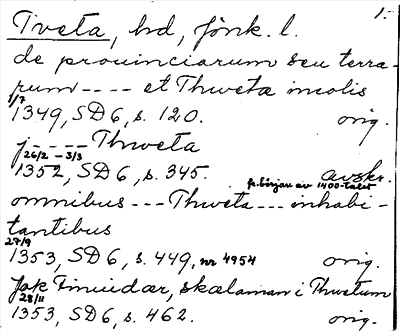 1.-
Tveta, hd, Jönk. l.
de prouinciarum seu terra-
rum ---- et Thwetæ incolis
1/7
1349, SD 6, s. 120. orig.
j ----- Thweta
26/2 - 3/3
1352, SD 6, s. 345. avskr.
fr. början av 1400-talet
omnibus --- Thweta --- inhabi-
tantibus
27/9
1353, SD 6, s. 449, nr 4954 orig.
skælaman i Thwetum
28/11
1353, SD 6, s. 462. orig.